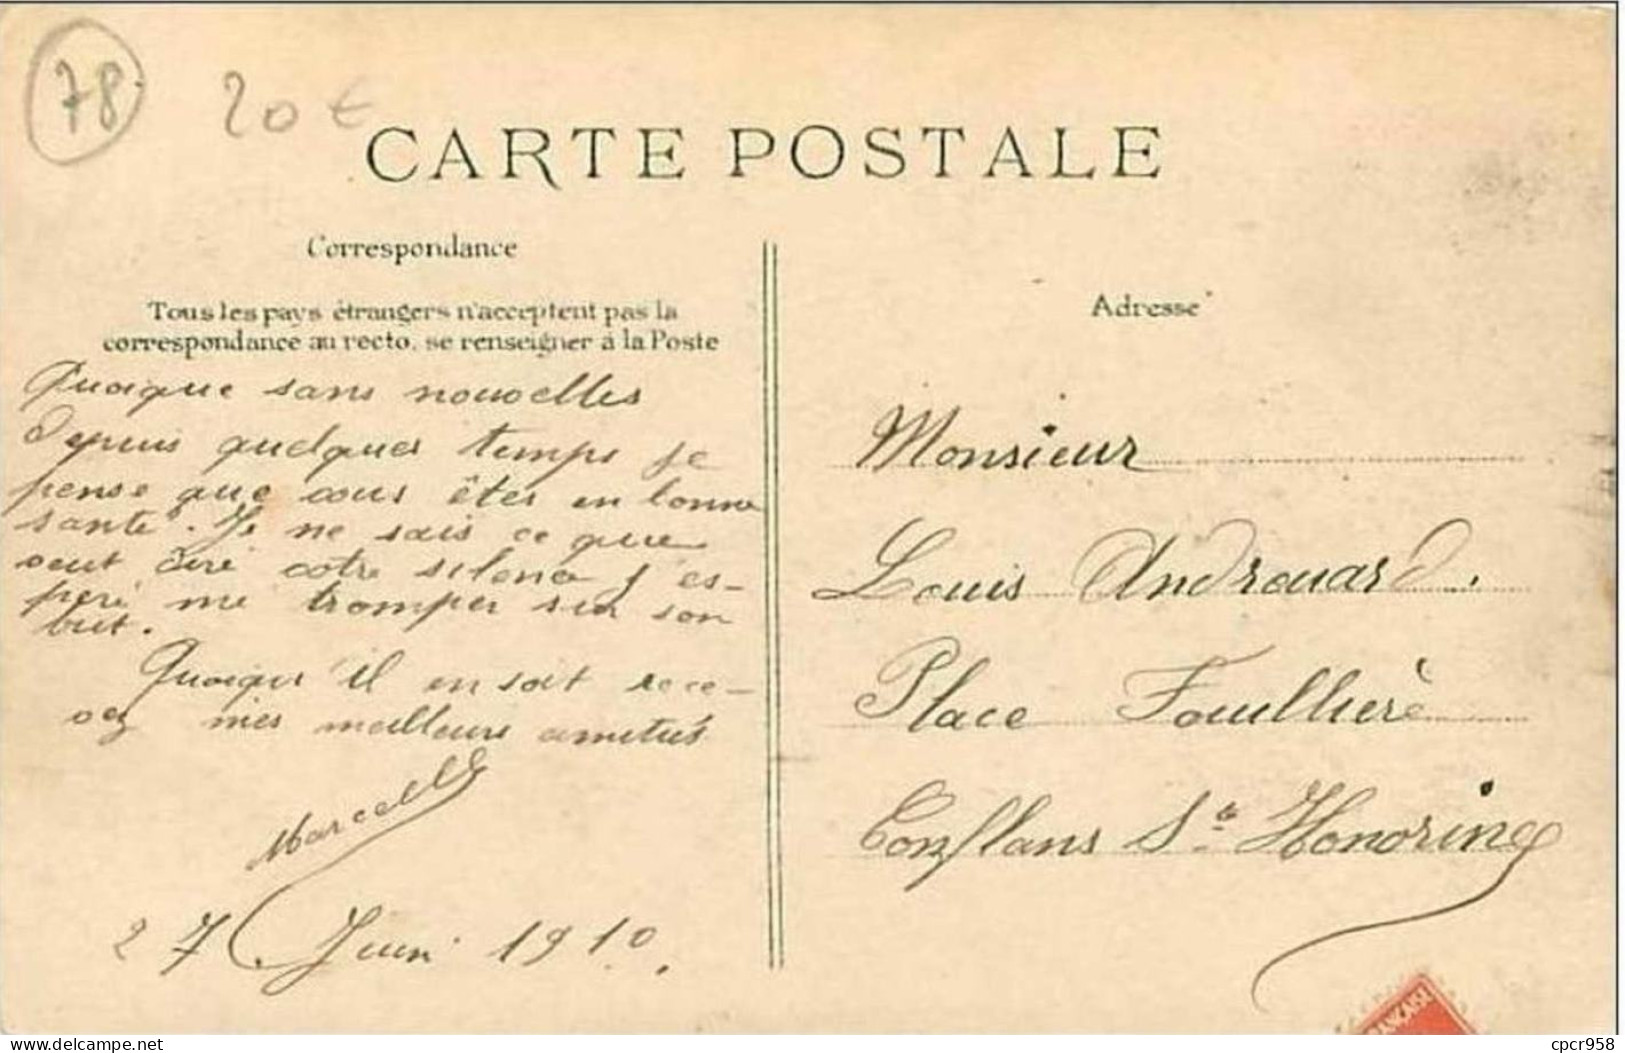 78
20 €
CARTE POSTALE
Correspondance
Tous les pays étrangers n'acceptent pas la
correspondance au recto, se renseigner à la Poste
Quoique sans nouvelles
depuis quelques temps je
pense que vous êtes en bonne
santé. Je ne sais ce que
veut dire votre silence j'es-
père me tromper sur son
but.
Quoiqu'il en soit rece-
vez mes meilleurs amitiés
Marcelle
27 Juin 1910.
Adresse
Monsieur
Louis Androuard.
Place Fouillère
Conflans Ste Honorine
FRANÇAISE
www.delcampe.net
cpcr958